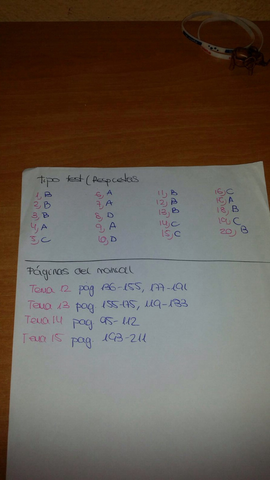 Tipo test (Respuestas
1, B 6, A 11, B 16, C
2, B 7, A 12, B 17, A
3, B 8, D 13, B 18, B
4, A 9, A 14, C 19, C
5, C 10, D 15, C 20, B
Páginas del manual
Tema 12 pag 136-155, 177-191
Tema 13 pag 155-175, 119-133
Tema 14 pag 95-112
Tema 15 pag 193-211